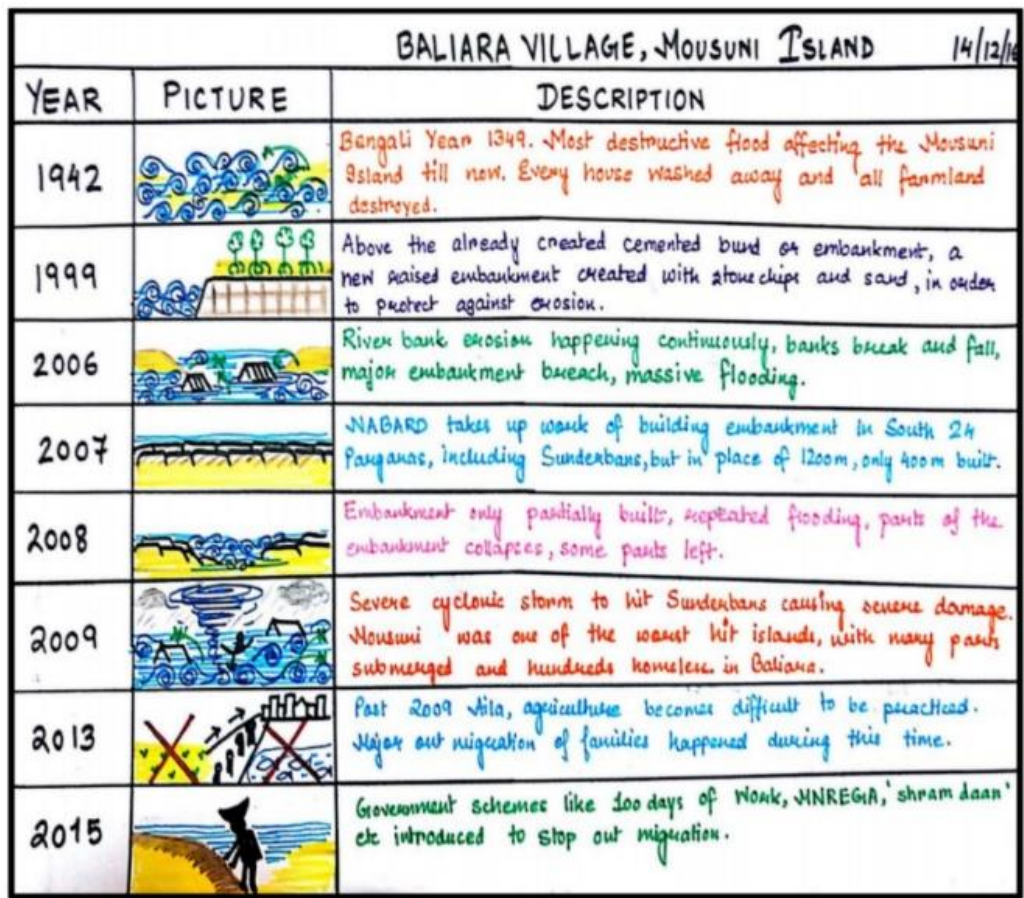 BALIARA VILLAGE, MOUSUNI ISLAND 14/12/
YEAR PICTURE DESCRIPTION
1942
Bengali Year 1349. Most destructive flood affecting the Mousuni
Island till now. Every house washed away and all farmland
destroyed.
1999
Above the already created cemented bund or embankment, a
new raised embankment created with stone chips and sand, in order
to protect against erosion.
2006
River bank erosion happening continuously, banks break and fall,
major embankment breach, massive flooding.
2007
NABARD takes up work of building embankment in South 24
Parganas, including Sunderbans, but in place of 1200m, only 400m built.
2008
Embankment only partially built, repeated flooding, parts of the
embankment collapses, some parts left.
2009
Severe cyclonic storm to hit Sunderbans causing severe damage.
Mousuni was one of the worst hit islands, with many parts
submerged and hundreds homeless in Baliara.
2013
Post 2009 Aila, agriculture becomes difficult to be practiced.
Major out migration of families happened during this time.
2015
Government schemes like 100 days of Work, MNREGA, 'shram daan'
etc introduced to stop out migration.